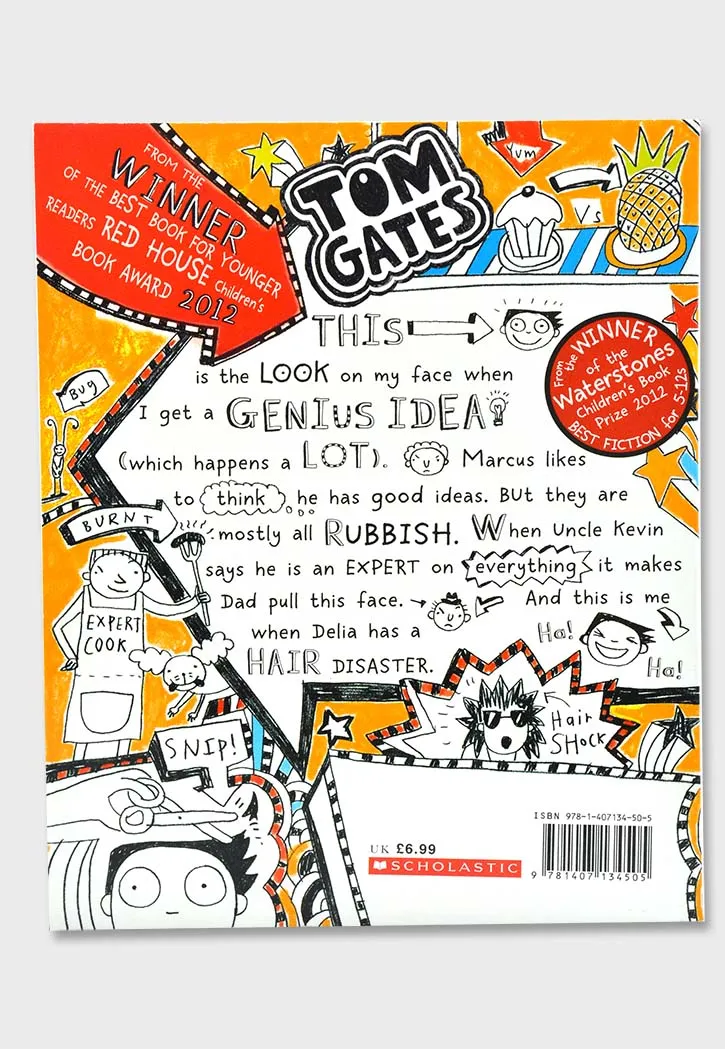 FROM THE
WINNER
OF THE BEST BOOK FOR YOUNGER
READERS RED HOUSE Children's
BOOK AWARD 2012
TOM
GATES
Yum
VS
THIS
is the LOOK on my face when
I get a GENIUS IDEA
(which happens a LOT). Marcus likes
to think he has good ideas. But they are
mostly all RUBBISH. When Uncle Kevin
says he is an EXPERT on everything it makes
Dad pull this face. And this is me
when Delia has a
HAIR DISASTER.
Ha!
Ha!
From the WINNER
of the
Waterstones
Children's Book
Prize 2012
BEST FICTION for 5-12s
Bug
BURNT
EXPERT
COOK
SNIP!
Hair
SHOCK
ISBN 978-1-407134-50-5
UK £6.99
SCHOLASTIC
9 781407 134505